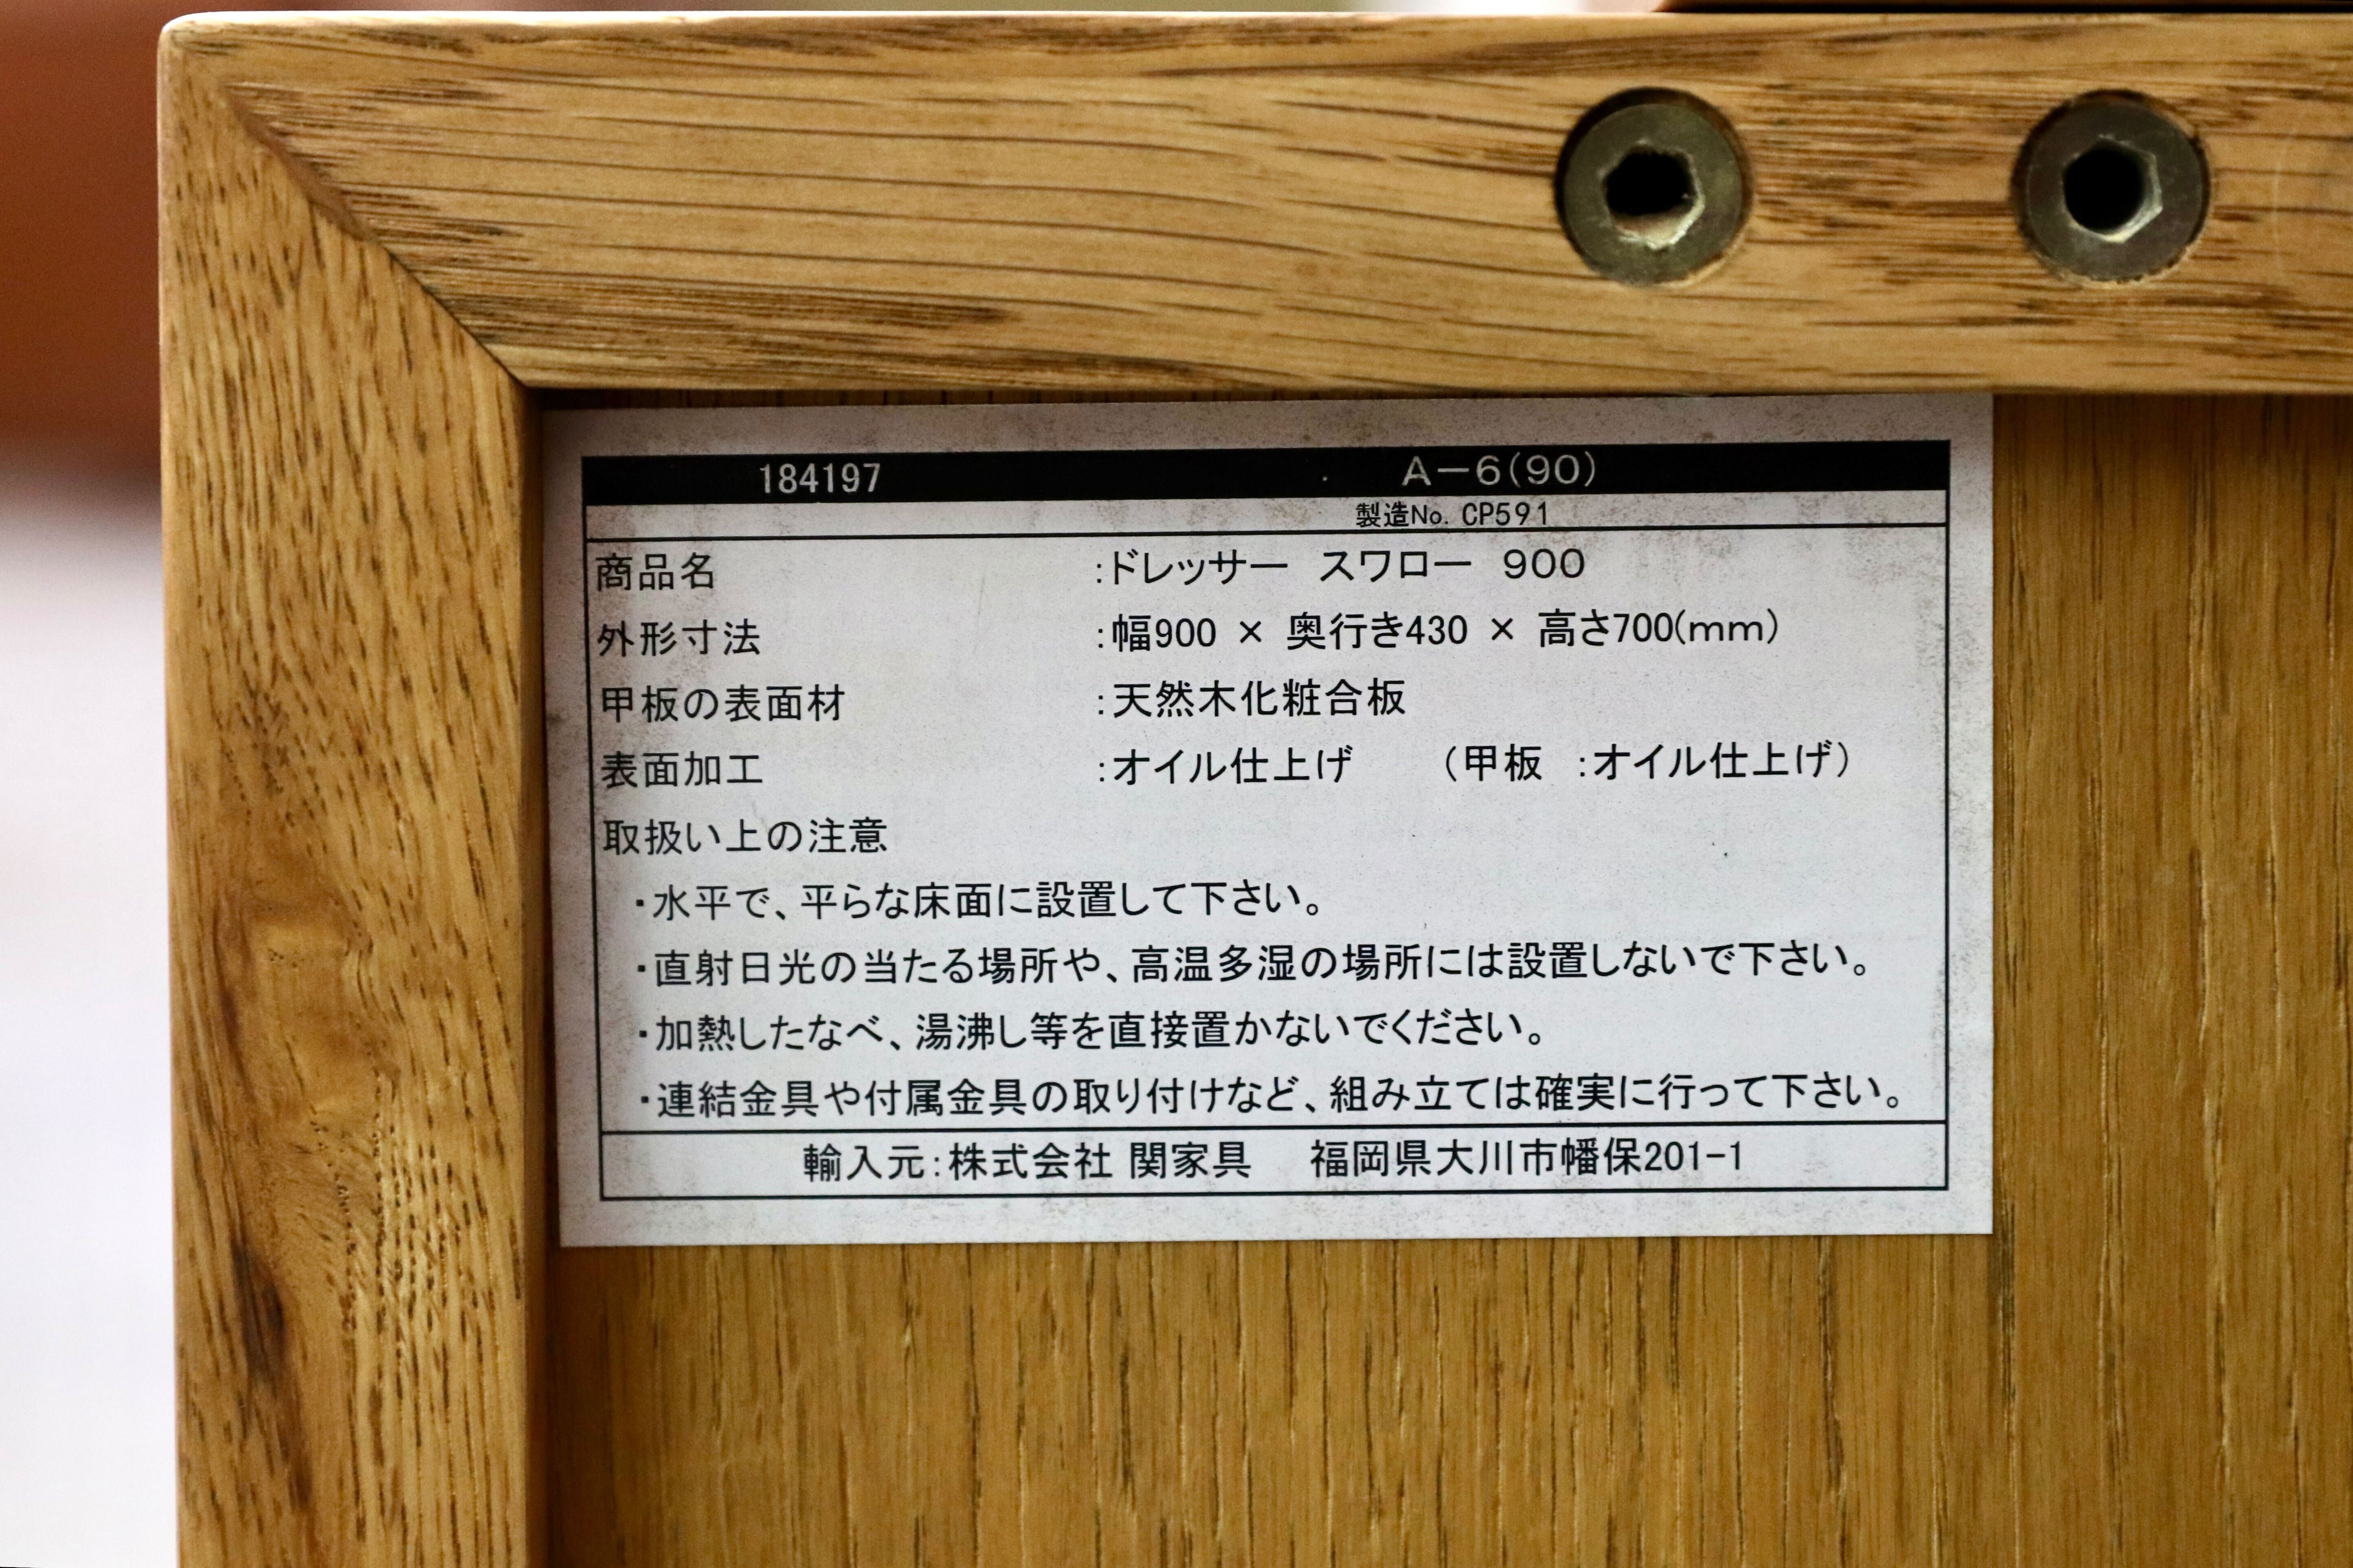 184197 A-6(90)
製造No. CP591
商品名 :ドレッサー スワロー 900
外形寸法 :幅900 × 奥行き430 × 高さ700(mm)
甲板の表面材 :天然木化粧合板
表面加工 :オイル仕上げ (甲板 :オイル仕上げ)
取扱い上の注意
・水平で、平らな床面に設置して下さい。
・直射日光の当たる場所や、高温多湿の場所には設置しないで下さい。
・加熱したなべ、湯沸し等を直接置かないでください。
・連結金具や付属金具の取り付けなど、組み立ては確実に行って下さい。
輸入元:株式会社 関家具 福岡県大川市幡保201-1